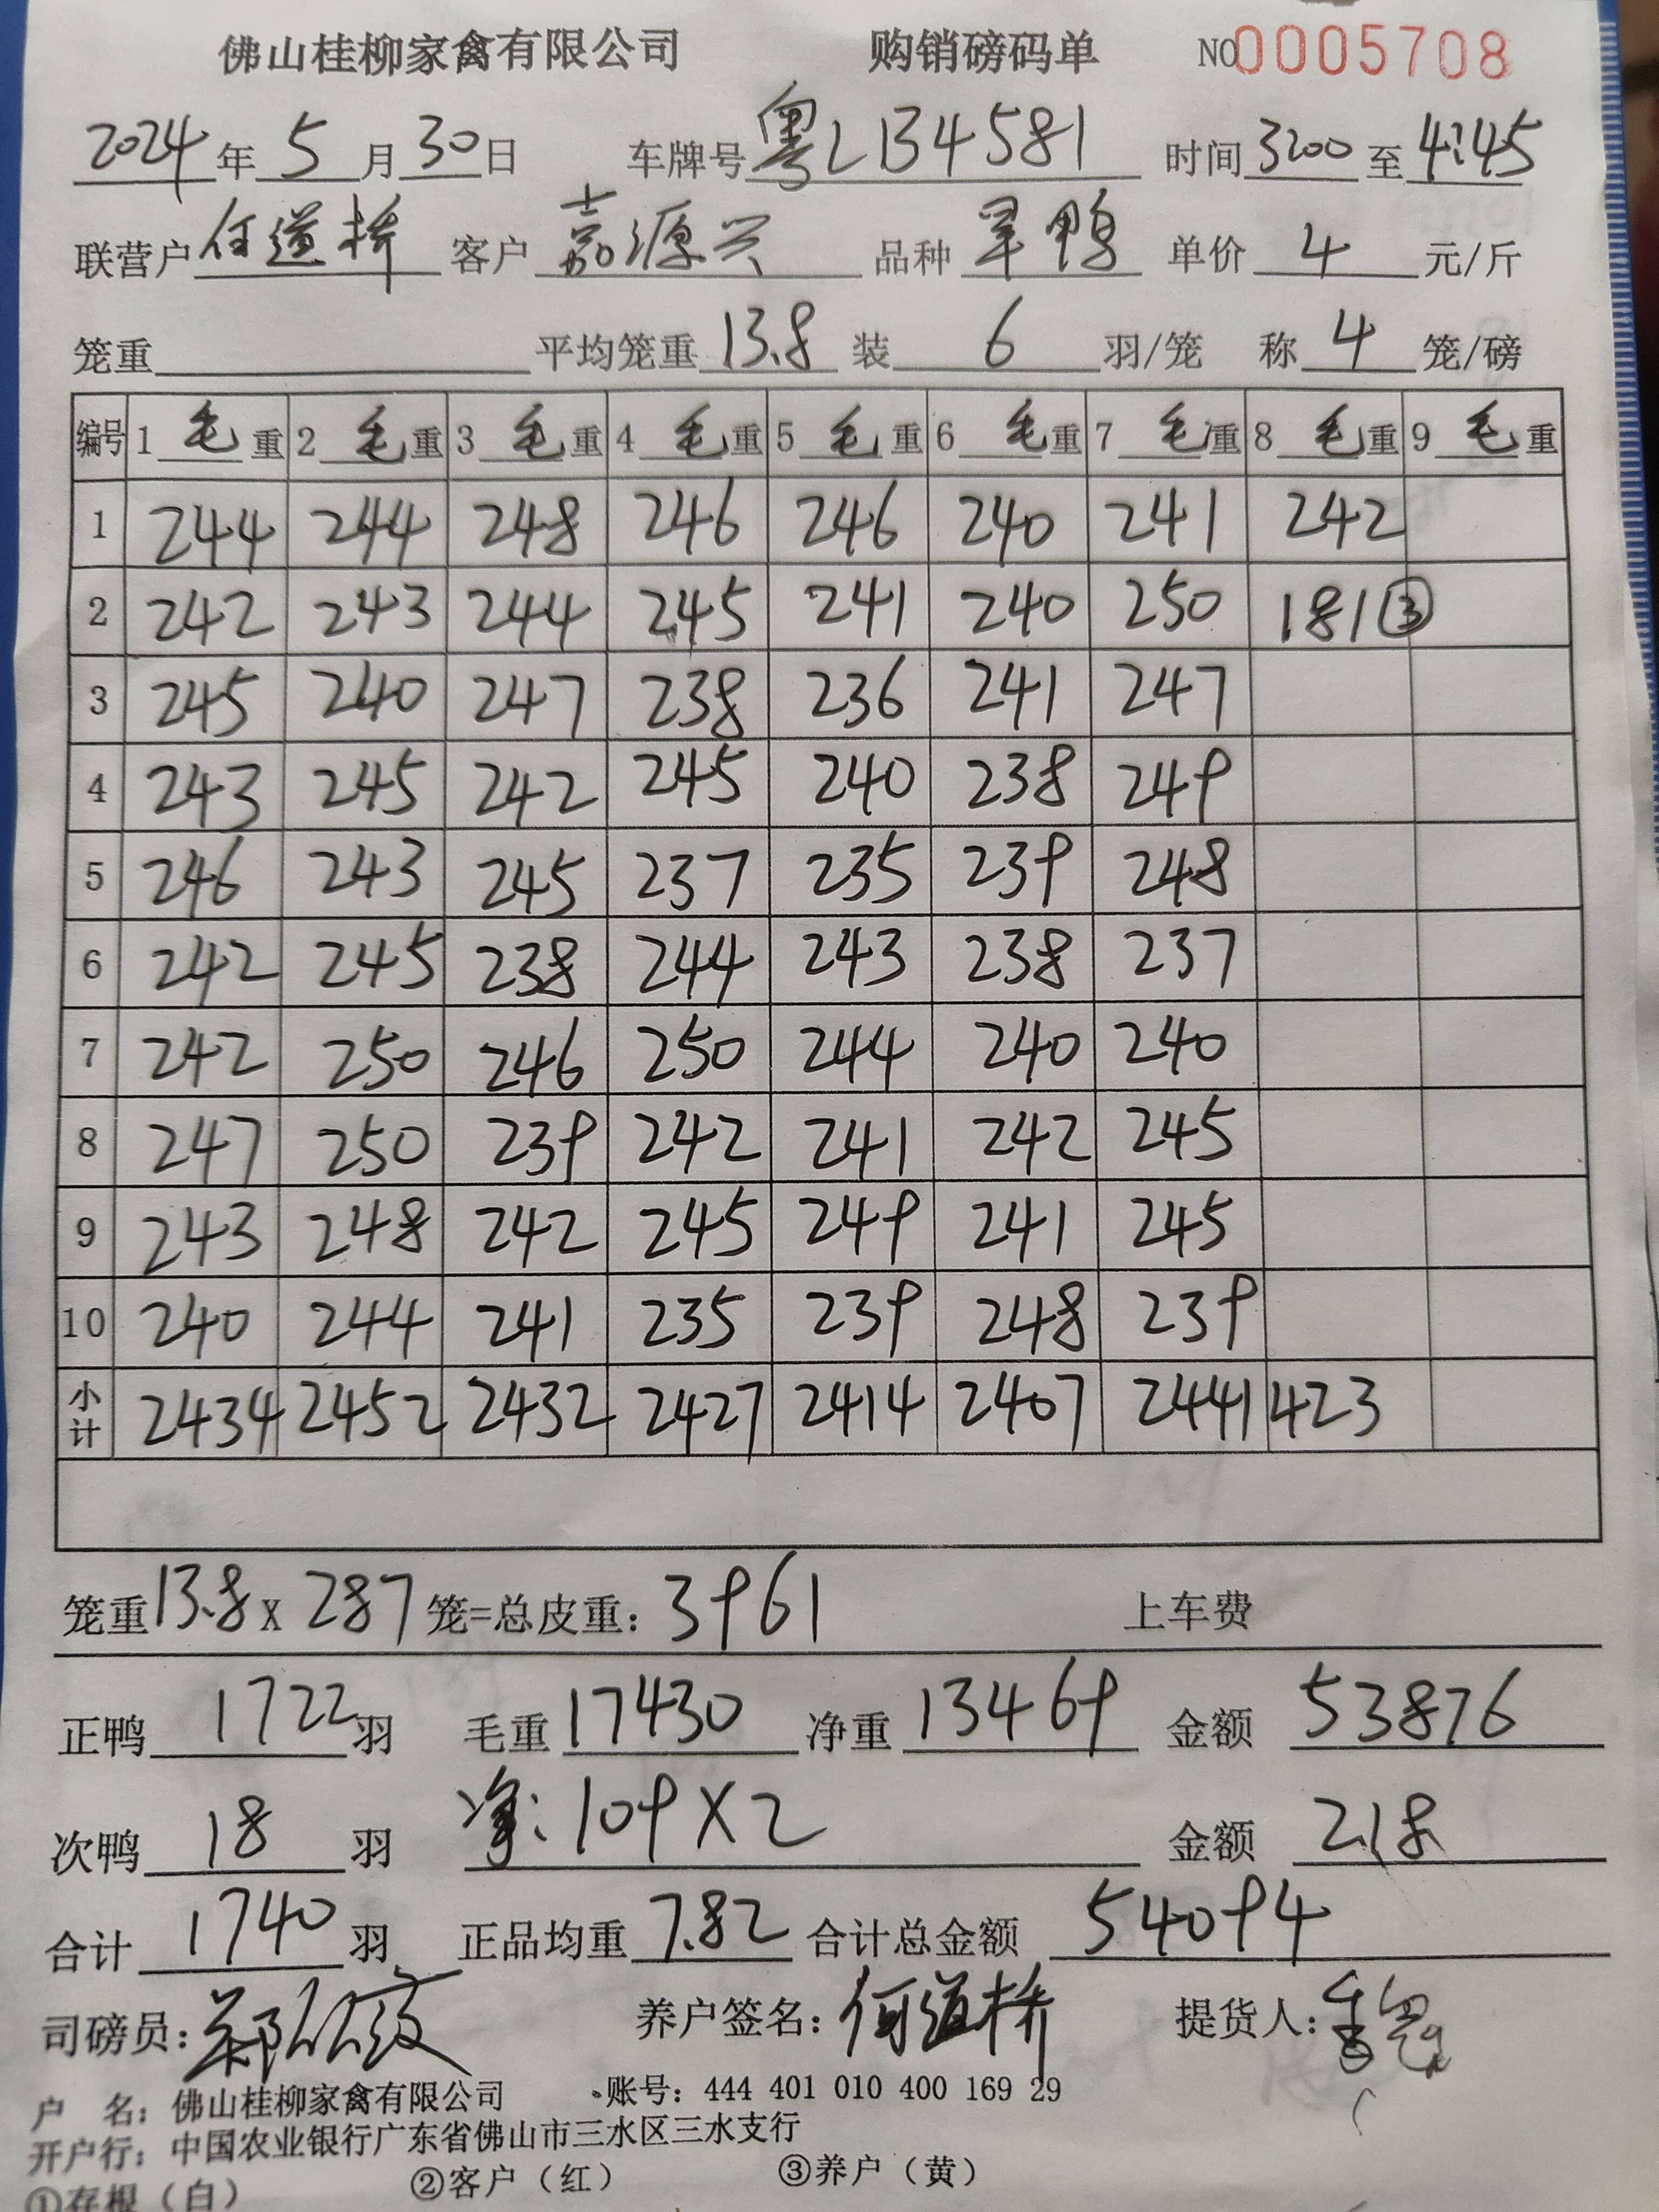 佛山桂柳家禽有限公司 购销磅码单 NO0005708
2024年5月30日 车牌号粤LB4581 时间3:00至4:45
联营户任道桥 客户嘉源兴 品种旱鸭 单价4元/斤
笼重 平均笼重13.8装6羽/笼 称4笼/磅
编号 1毛重 2毛重 3毛重 4毛重 5毛重 6毛重 7毛重 8毛重 9毛重
1 244 244 248 246 246 240 241 242
2 242 243 244 245 241 240 250 181③
3 245 240 247 238 236 241 247
4 243 245 242 245 240 238 249
5 246 243 245 237 235 239 248
6 242 245 238 244 243 238 237
7 242 250 246 250 244 240 240
8 247 250 239 242 241 242 245
9 243 248 242 245 249 241 245
10 240 244 241 235 239 248 239
小计 2434 2452 2432 2427 2414 2407 2441 423
笼重13.8X287笼=总皮重：3961 上车费
正鸭1722羽 毛重17430 净重13469 金额53876
次鸭18羽 净：109X2 金额218
合计1740羽 正品均重7.82 合计总金额54094
司磅员： 养户签名：何道桥 提货人：
户 名：佛山桂柳家禽有限公司 账号：444 401 010 400 169 29
开户行：中国农业银行广东省佛山市三水区三水支行
①存根（白） ②客户（红） ③养户（黄）